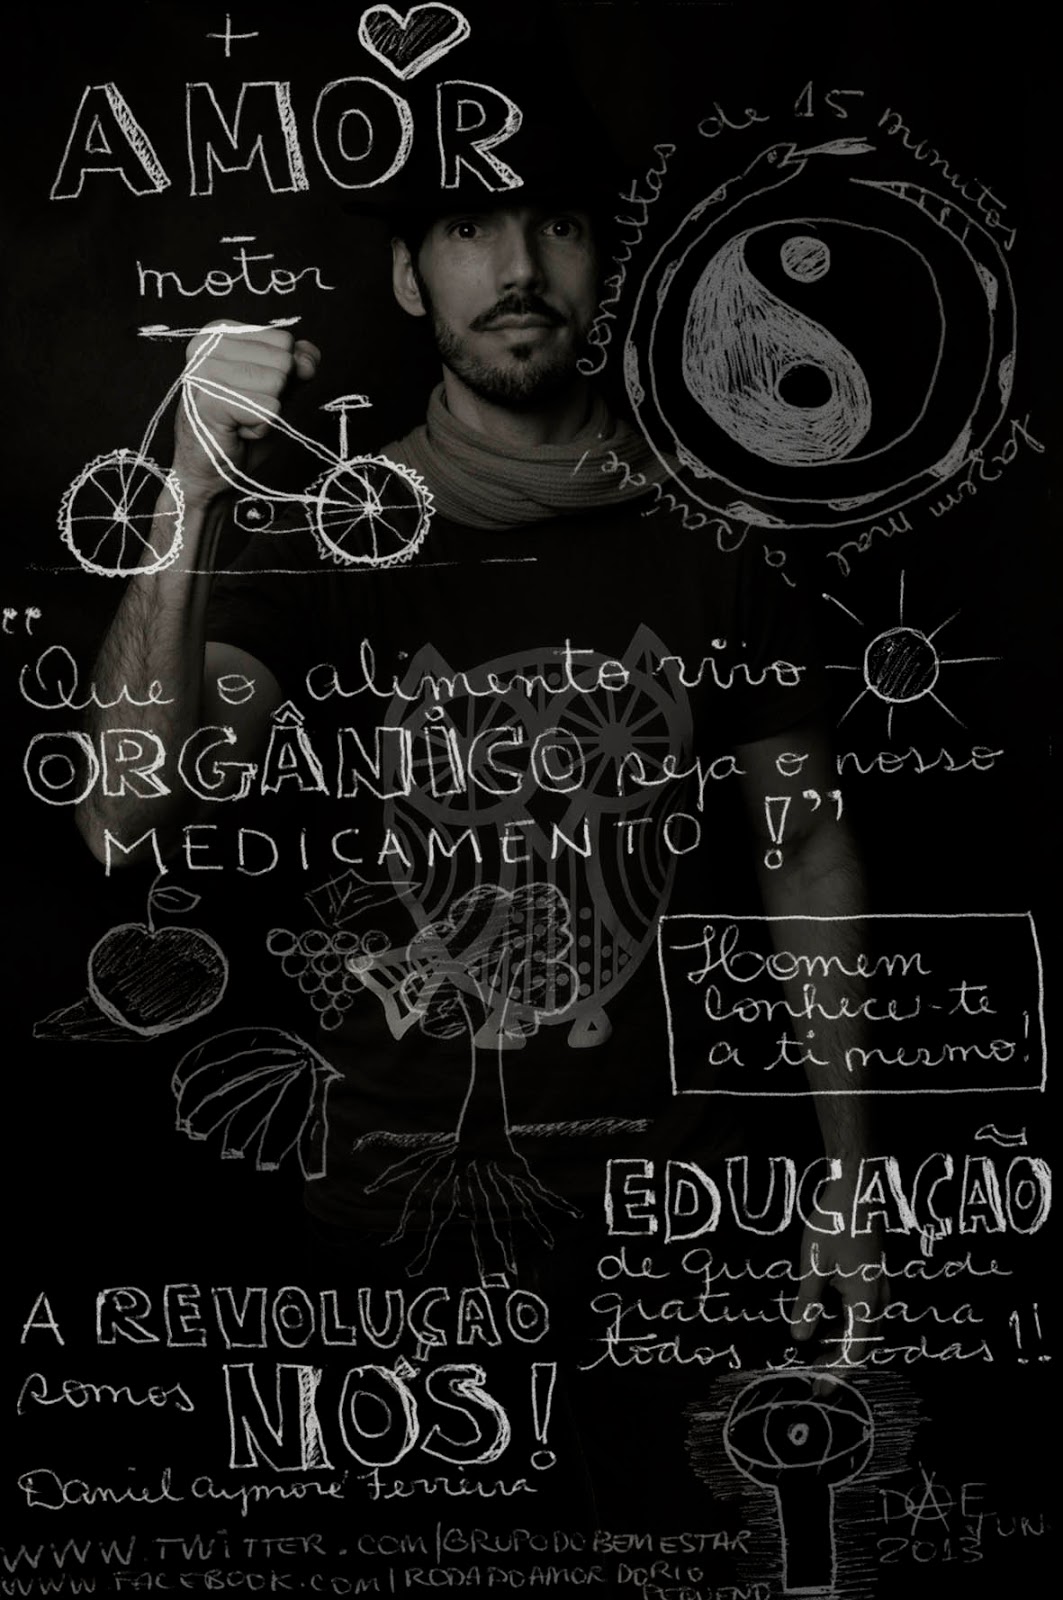 +
AMOR
-
motor
Consultas de 15 minutos
fazem mal à
"Que o alimento vivo
ORGÂNICO seja o nosso
MEDICAMENTO!"
Homem
conhece-te
a ti mesmo!
EDUCAÇÃO
de qualidade
gratuita para
todos e todas!!
A REVOLUÇÃO
somos NÓS!
Daniel Aymoré Ferreira
DAE
JUN
2013
WWW.TWITTER.COM/GRUPODOBEMESTAR
WWW.FACEBOOK.COM/RODADOAMORDORIO
PEQUENO